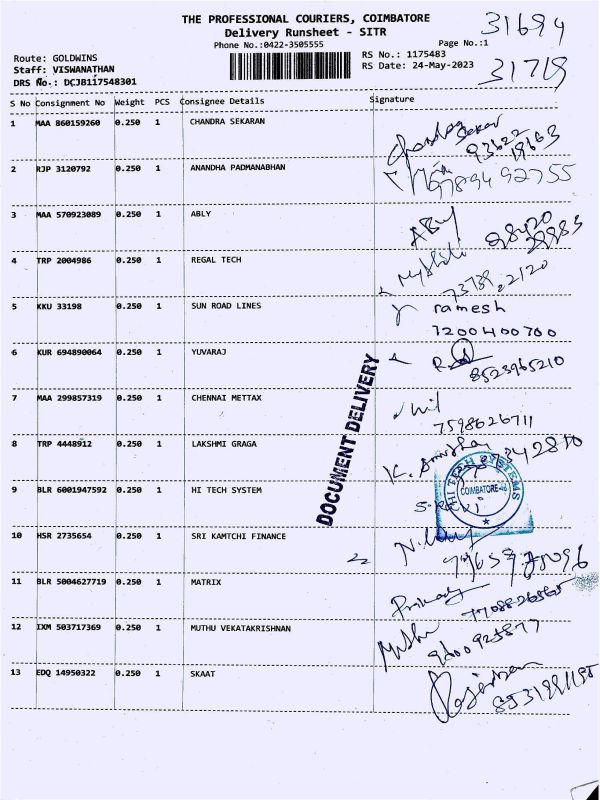 THE PROFESSIONAL COURIERS, COIMBATORE
31694
Delivery Runsheet - SITR
Phone No.:0422-3505555 Page No.:1
Route: GOLDWINS RS No.: 1175483
Staff: VISWANATHAN RS Date: 24-May-2023
31719
DRS No.: DCJB117548301
S No Consignment No Weight PCS Consignee Details Signature
1 MAA 860159260 0.250 1 CHANDRA SEKARAN
2 RJP 3120792 0.250 1 ANANDHA PADMANABHAN
97894 92755
3 MAA 570923089 0.250 1 ABLY
4 TRP 2004986 0.250 1 REGAL TECH
5 KKU 33198 0.250 1 SUN ROAD LINES ramesh
7200400700
6 KUR 694890064 0.250 1 YUVARAJ
8523965210
7 MAA 299857319 0.250 1 CHENNAI METTAX
7598626711
DOCUMENT DELIVERY
8 TRP 4448912 0.250 1 LAKSHMI GRAGA
9 BLR 6001947592 0.250 1 HI TECH SYSTEM
HI TECH SYSTEMS
COIMBATORE
10 HSR 2735654 0.250 1 SRI KAMTCHI FINANCE
11 BLR 5004627719 0.250 1 MATRIX
12 IXM 503717369 0.250 1 MUTHU VEKATAKRISHNAN
13 EDQ 14950322 0.250 1 SKAAT